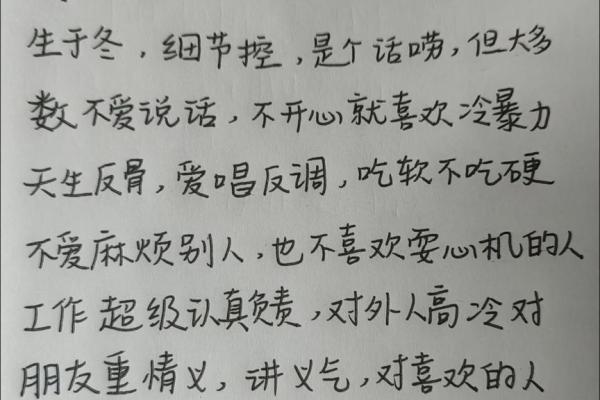 生于冬，细节控，是个话唠，但大多
数不爱说话，不开心就喜欢冷暴力
天生反骨，爱唱反调，吃软不吃硬
不爱麻烦别人，也不喜欢耍心机的人
工作超级认真负责，对外人高冷对
朋友重情义，讲义气，对喜欢的人